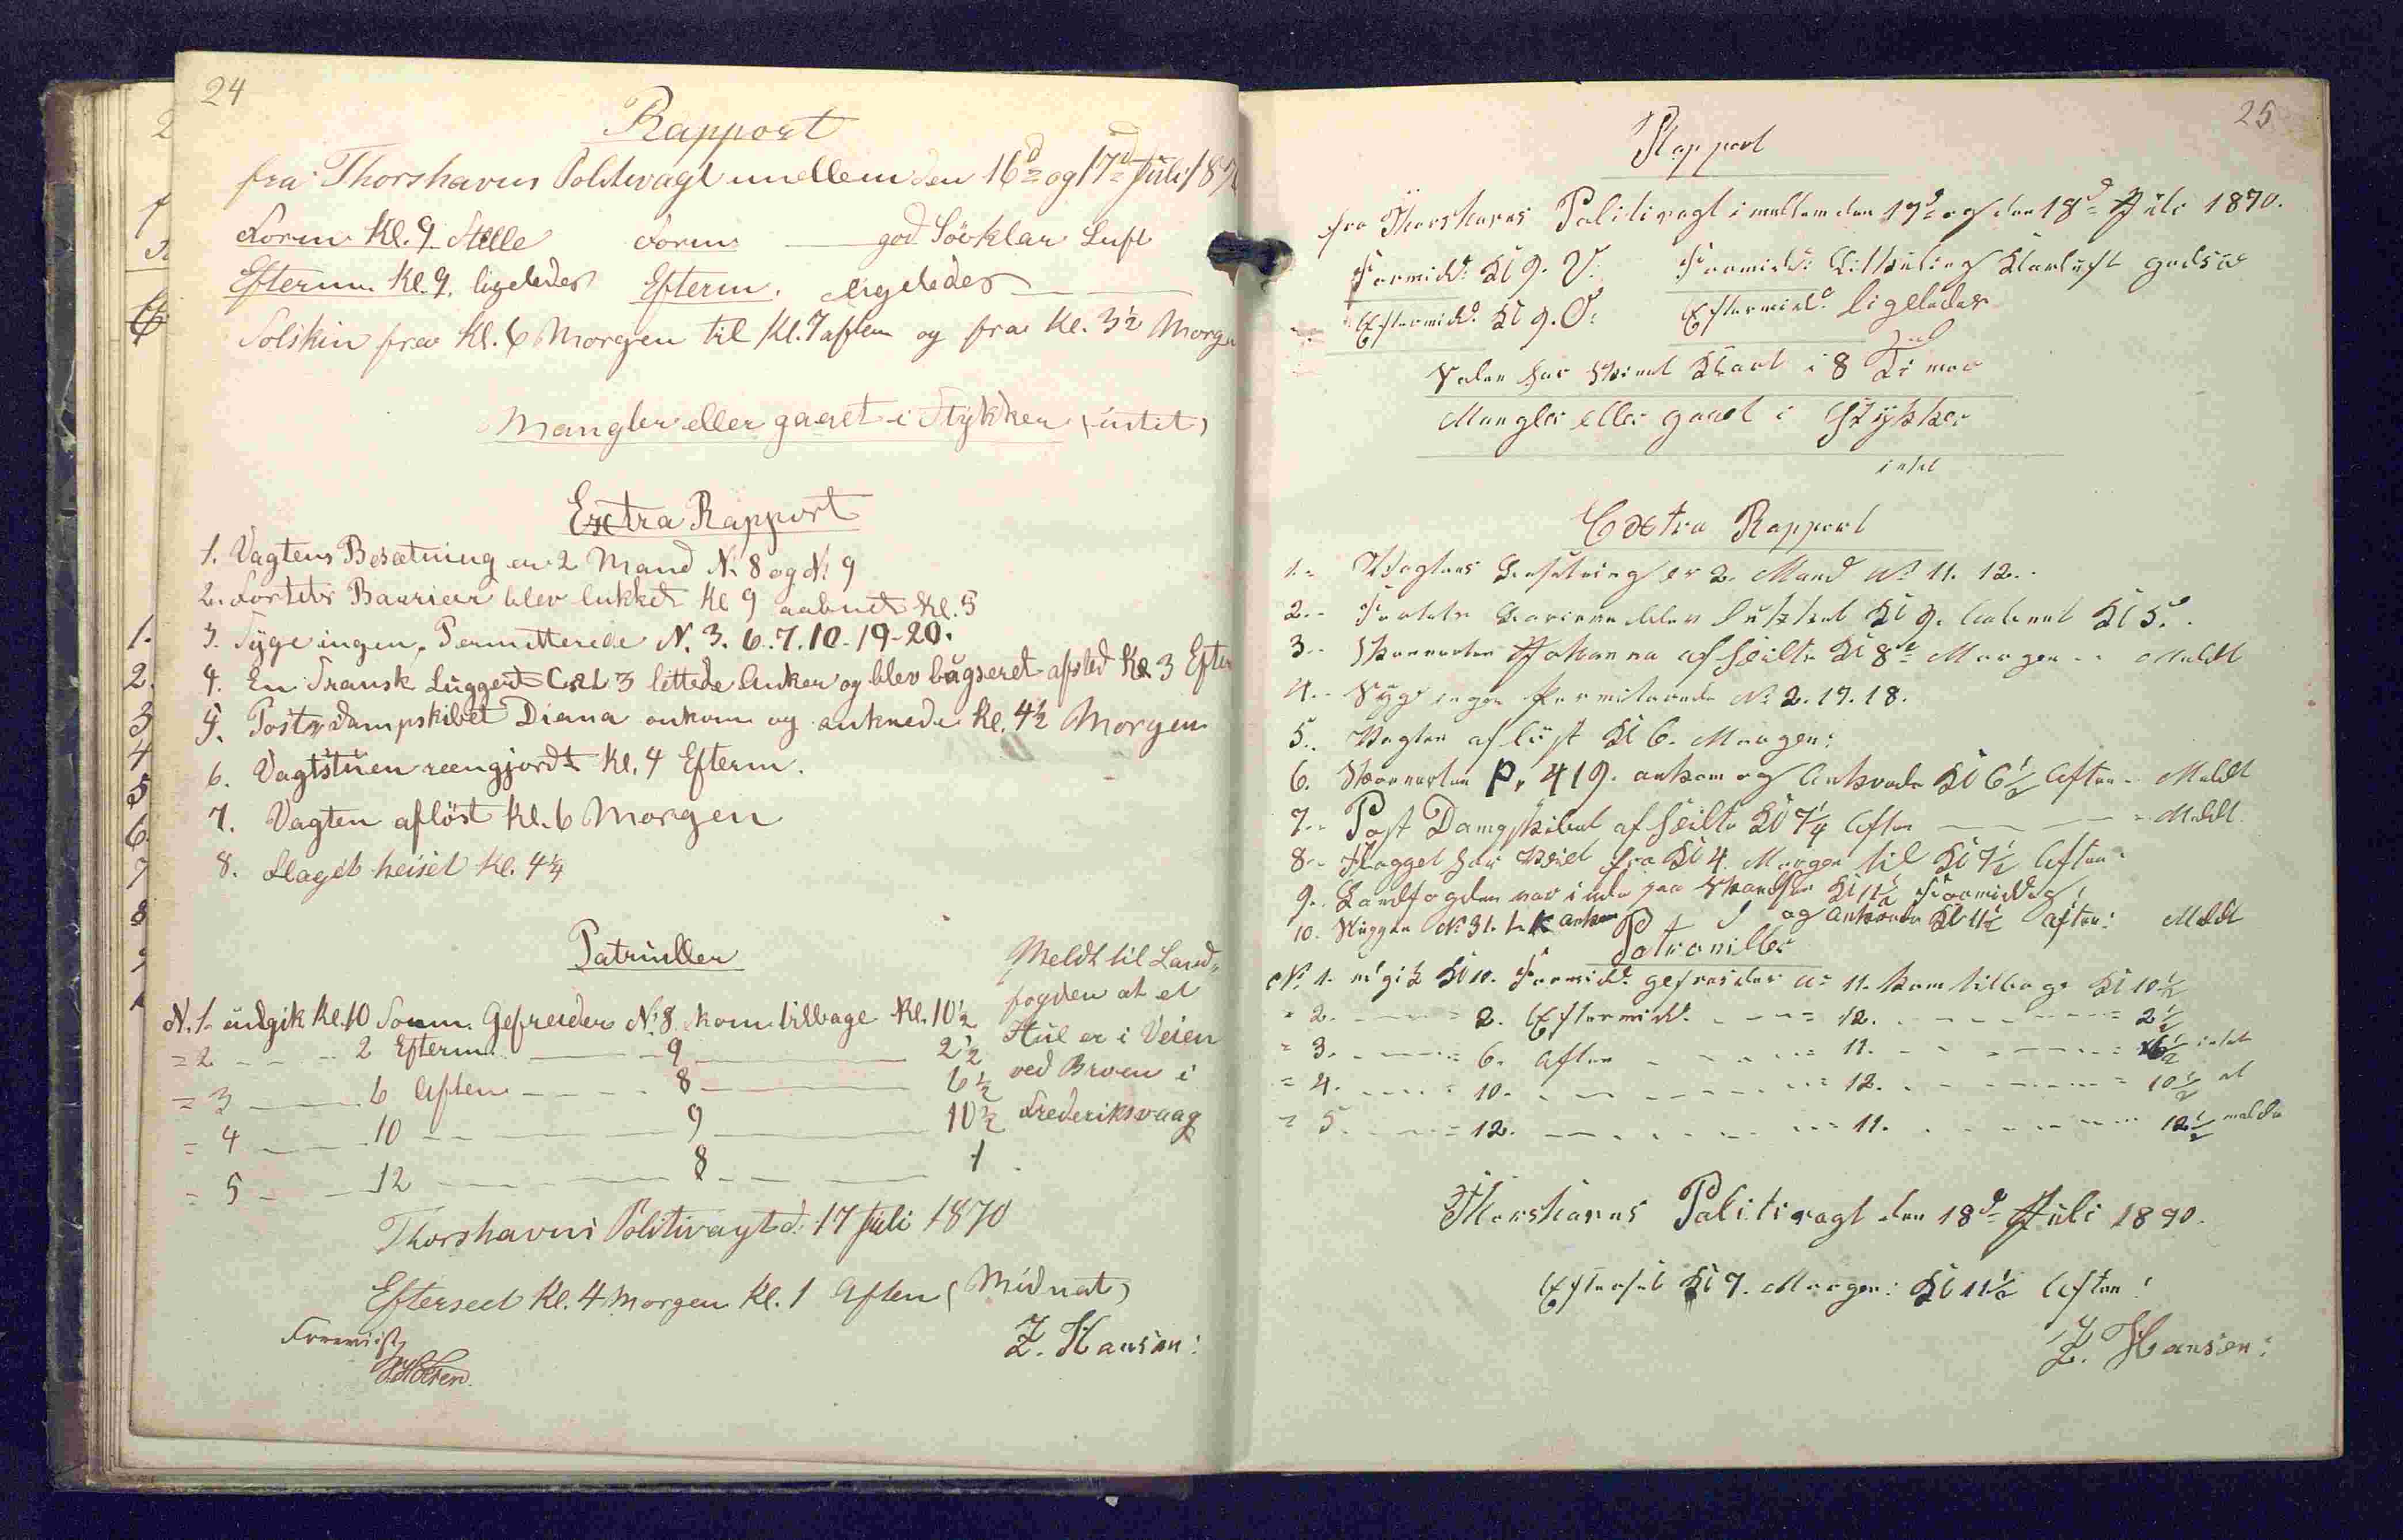 24
Rapport
fra Thorshavns Politivagt mellem den 16d og 17d Juli 187
Form. Kl. 9. Stille Form. god Söe klar Luft
Efterm. Kl. 9. ligeledes Efterm. ligeledes
Solskin fra Kl. 6 Morgen til Kl. 7 aften og fra Kl. 3½ Morge
Mangler eller gaaet i Stykker (intet)
Extra Rapport
1. Vagtens Besætning er 2 Mand N: 8 og N: 9
2. Fortets Barrier blev lukket Kl 9 aabnet Kl. 5
3. Syge ingen, Permitterede N. 3. 6. 7. 10. 19-20.
4. En Fransk Luggert C.R.L 3 lettede Anker og blev bugseret afsted Kl. 3 Efter
5. Postdampskibet Diana ankom og ankrede Kl. 4½ Morgen
6. Vagtstuen reengjordt Kl. 4 Efterm.
7. Vagten aflöst Kl. 6 Morgen
8. Flaget heiset Kl. 4¼
Patruller
N. 1. udgik Kl. 10 Form. Gefreider N: 8 kom tilbage Kl. 10½
= 2 2 Efterm. 9 2½
= 3 6 Aften 8 6½
= 4 10 9 10½
= 5 12 8 1
Meldt til Land-
fogden at et
Hul er i Veien
ved Broen i
Frederiksvaag
Thorshavns Politivagt d. 17 Juli 1870
Efterseet Kl. 4 Morgen Kl. 1 Aften (Midnat)
Z. Hansen:
25
Rapport
fra Thorshavns Politivagt imellem den 17d og den 18d Juli 1870.
Formidd: Kl 9. V: Formidd: Klarluft godsöe
Eftermidd: Kl 9. O: Eftermidd: ligeledes
Solen har skinet Klart i 8 Timer
Mangler eller gaaet i Stykker
intet
Extra Rapport
1. Vagtens Besætning er 2. Mand No 11. 12.
2. Fortets Barriere blev lukket Kl 9. Aabnet Kl 5.
3. Skonnerten Johanna afseilte Kl 8 Morgen Meldt
4. Syge ingen Permiterede No 2. 17. 18.
5. Vagten aflöst Kl 6. Morgen:
6. Skonnerten P. 419. ankom og Ankrede Kl 6½ Aften Meldt
7. Post Dampskibet afseilte Kl 7¼ Aften Meldt.
8. Flagget har Veiet fra Kl 4 Morgen til Kl 7½ Aften
9. Landfogden var inde paa Skandsen Kl 11½ Formiddag
10. Sluppen No 31. L.K ankom og Ankrede Kl 11½ Aften: Meldt
Patrouiller
No 1. udgik Kl 10. Formidd: gefreider No 11. kom tilbage Kl 10½
= 2. = 2. Eftermidd. = 12. = 2½
= 3. = 6. Aften = 11. = 6½ intet
= 4. = 10. = 12. = 10½ at
= 5. = 12. = 11. 12½ melde
Thorshavns Politivagt den 18d Juli 1870.
Efterset Kl 7. Morgen: Kl 11½ Aften:
Z. Hansen:
1.
2.
3
4
5
6
7
8
9